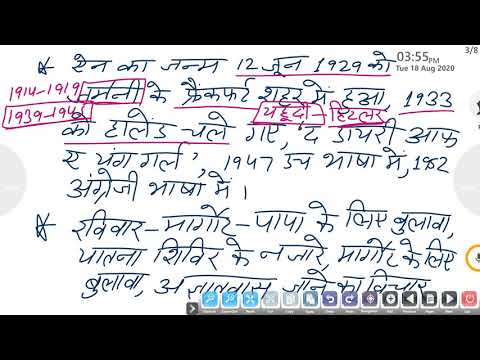 03:55PM
Tue 18 Aug 2020
3/8
* ऐन का जन्म 12 जून 1929 को
1914-1919
जर्मनी के फ्रैंकफर्ट शहर में हुआ, 1933
1939-1945
यहूदी - हिटलर
को हालैंड चले गए, 'द डायरी आफ
ए यंग गर्ल', 1947 डच भाषा में, 1952
अंग्रेजी भाषा में।
* रविवार - मार्गोट - पापा के लिए बुलावा,
यातना शिविर के नजारे, मार्गोट के लिए
बुलावा, अज्ञातवास जाने का विचार